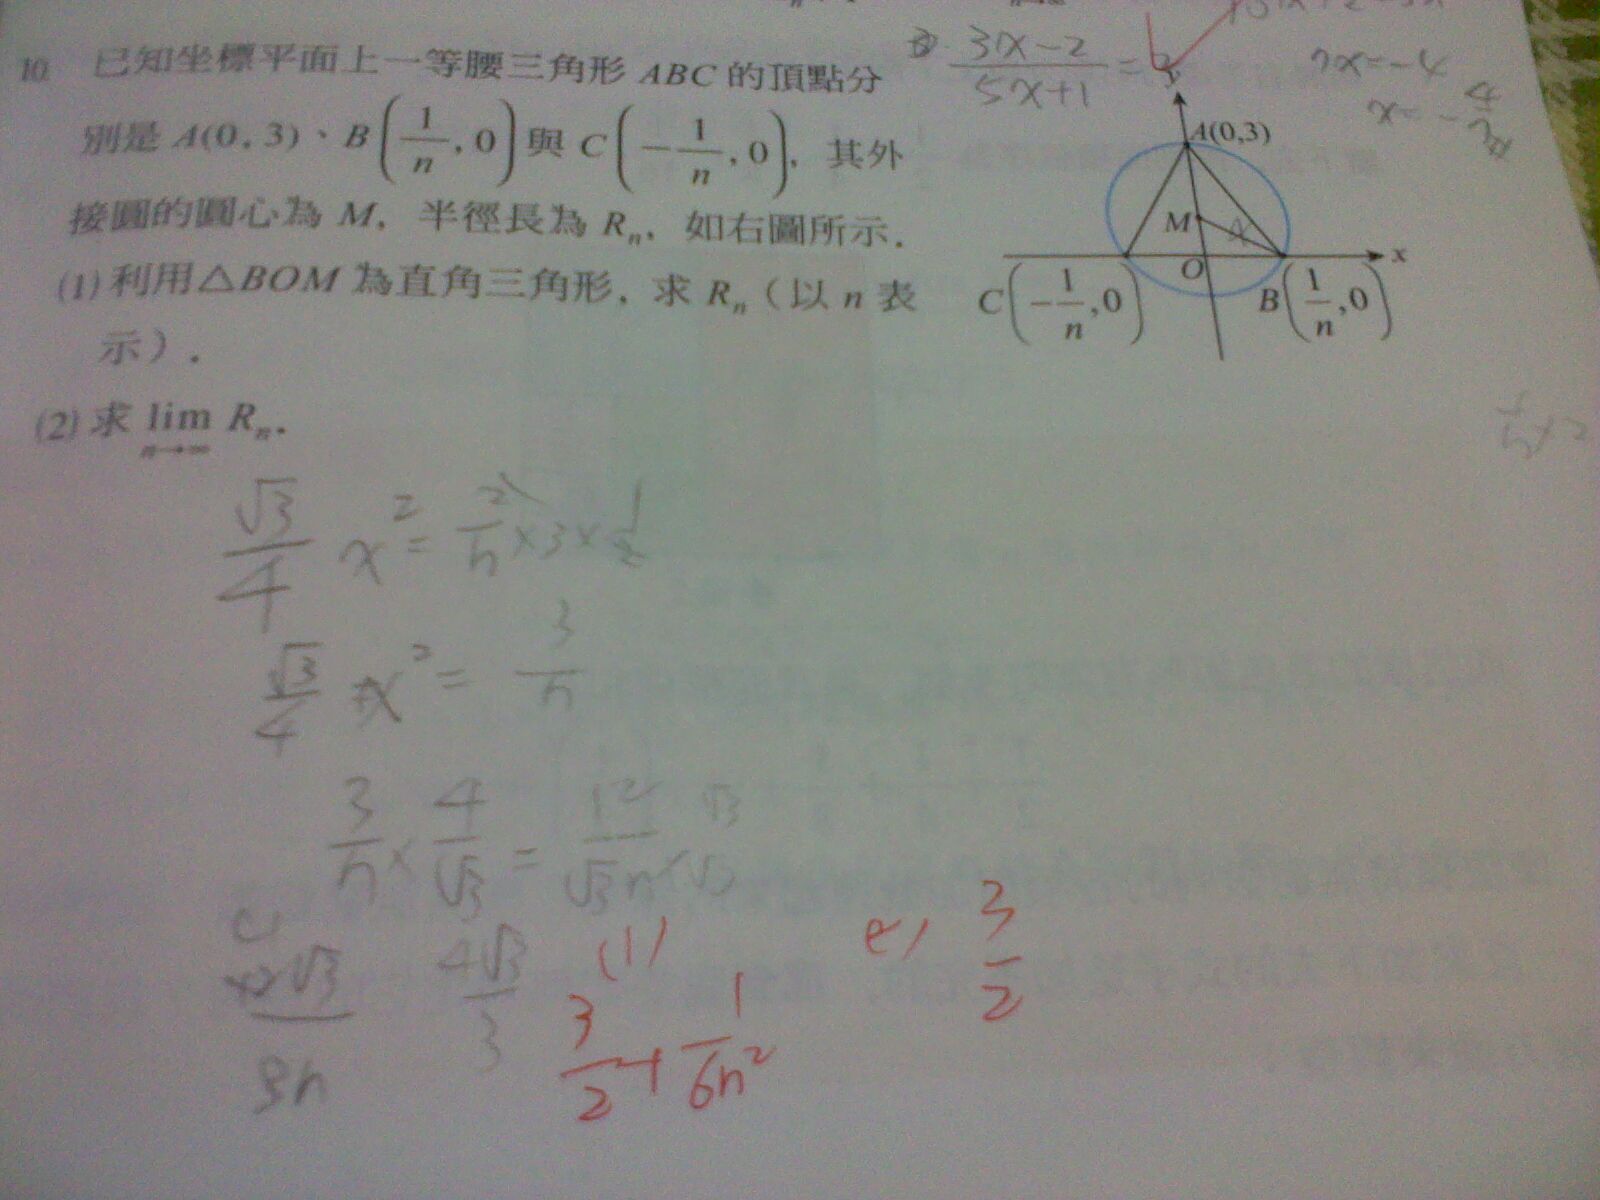 10. 已知坐標平面上一等腰三角形 ABC 的頂點分
別是 A(0, 3)、B(1/n, 0)與 C(-1/n, 0), 其外
接圓的圓心為 M, 半徑長為 Rn, 如右圖所示.
(1)利用△BOM 為直角三角形, 求 Rn (以 n 表
示).
(2)求 lim n→∞ Rn.
3x-2 / 5x+1 =
7x=-4
A(0,3)
M
O
x
C(-1/n, 0)
B(1/n, 0)
√3/4 x² = 2/n × 3 × 1/2
√3/4 x² = 3/n
3/n × 4/√3 = 12/√3n × √3/√3
4√3/3
(1)
3/2 + 1/6n²
3/2